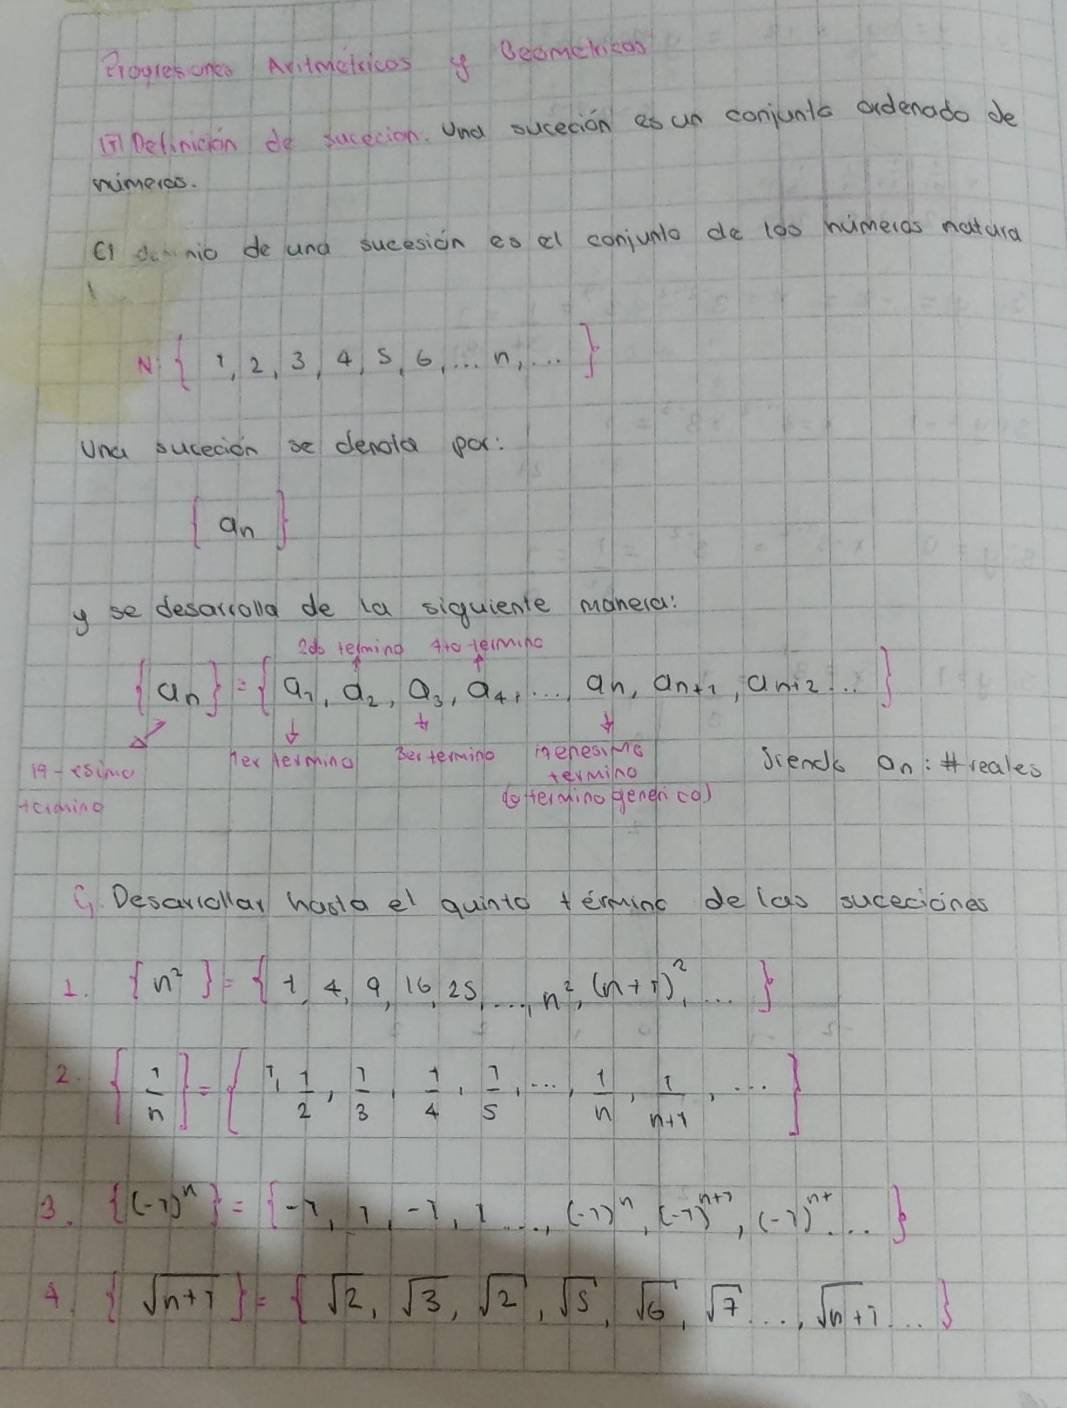 Progresiones Aritmetricas y Geometricas
Definición de suceción. Una suceción es un conjunto ordenado de
números.
El nio de una sucesión es el conjunto de los números natura
l
N: { 1, 2, 3, 4, 5, 6, ... n, ... }
Una suceción se denota por:
{ an }
y se desarrolla de la siguiente manera:
2do termino 4to termino
{ an } = { a1, a2, a3, a4, ..., an, an+1, an+2 ... }
1er termino 3er termino
termino
(o termino generico)
-esimo
termino
Siendo an: # reales
Desarrollar hasta el quinto término de las suceciónes
1. { n² } = { 1, 4, 9, 16, 25, ..., n², (n+1)², ... }
2. { 1/n } = { 1, 1/2, 1/3, 1/4, 1/5, ..., 1/n, 1/n+1, ... }
3. { (-1)ⁿ } = { -1, 1, -1, 1 ..., (-1)ⁿ, (-1)ⁿ⁺¹, (-1)ⁿ⁺ ... }
4. { √n+1 } = { √2, √3, √2, √5, √6, √7 ..., √n+1 ... }